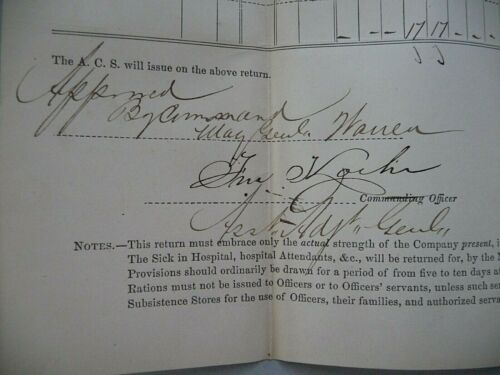 17 17
The A. C. S. will issue on the above return.
Approved
By Command
Maj Genl. Warren
Commanding Officer
Asst. Adjt. Genl.
NOTES.—This return must embrace only the actual strength of the Company present, i
The Sick in Hospital, hospital Attendants, &c., will be returned for, by the M
Provisions should ordinarily be drawn for a period of from five to ten days at
Rations must not be issued to Officers or to Officers' servants, unless such ser
Subsistence Stores for the use of Officers, their families, and authorized serva